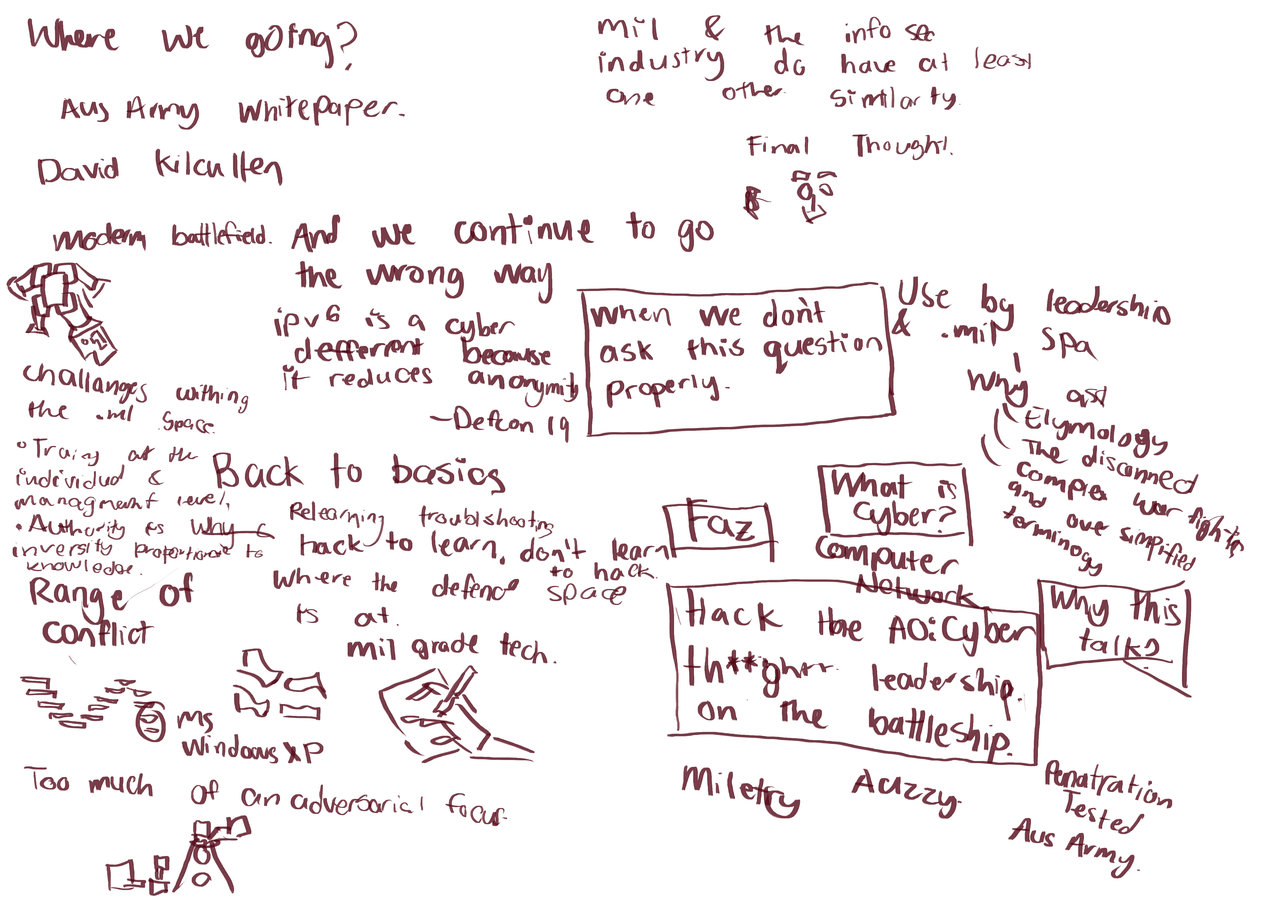 Where we going?
Aus Army Whitepaper.
David Kilcullen
modern battlefield.
challanges withing
the .mil space.
• Trainy at the
individual &
managment level,
• Authority is
inversity proportionate to
knowledge.
Range of
conflict
ms
Windows XP
Too much of an adversarial focus.
And we continue to go
the wrong way
ipv6 is a cyber
defferent because
it reduces anonymity
- Defcon 19
Back to basics
Relearning troubleshooting
hack to learn, don't learn
to hack.
Where the defence space
is at.
mil grade tech.
mil & the info sec
industry do have at least
one other similarty.
Final Thought!
When we don't
ask this question
properly.
Use by leadership
& .mil spa
Why
Etymology
The disconned
Complex war fighter
and over simplified
terminogy
What is
cyber?
Computer
Network
Faz
Hack the AO:Cyber
leadership.
on the battleship.
Why this
talk?
Miletry Auzzy.
Penatration
Tested
Aus Army.